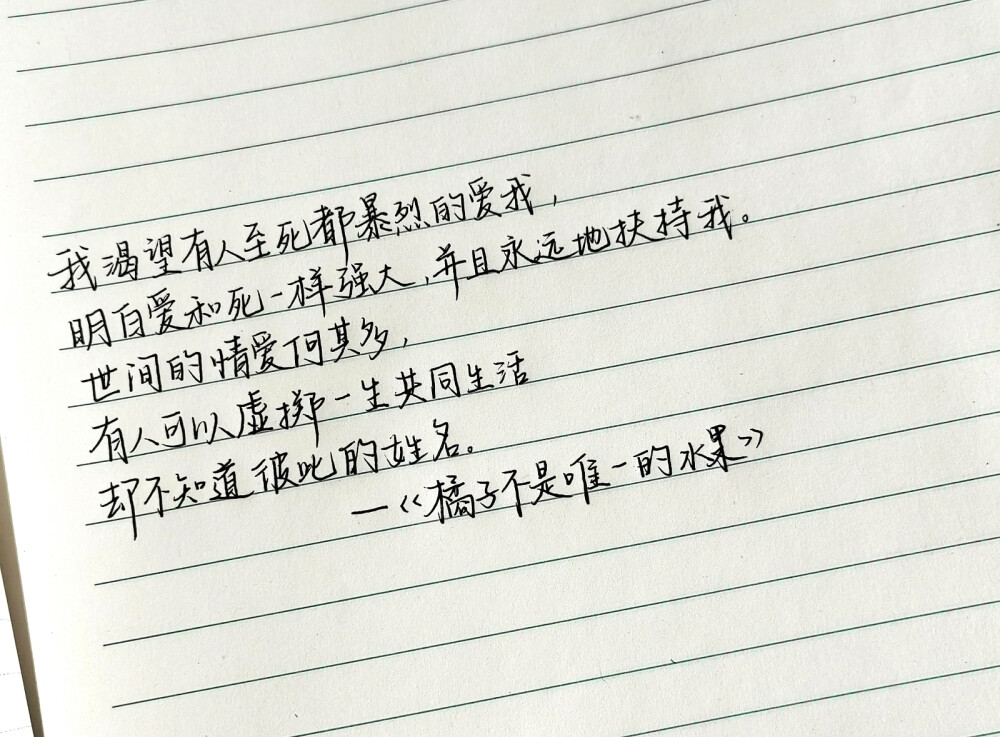 我渴望有人至死都暴烈的爱我，
明白爱和死一样强大，并且永远地扶持我。
世间的情爱何其多，
有人可以虚掷一生共同生活
却不知道彼此的姓名。
—《橘子不是唯一的水果》